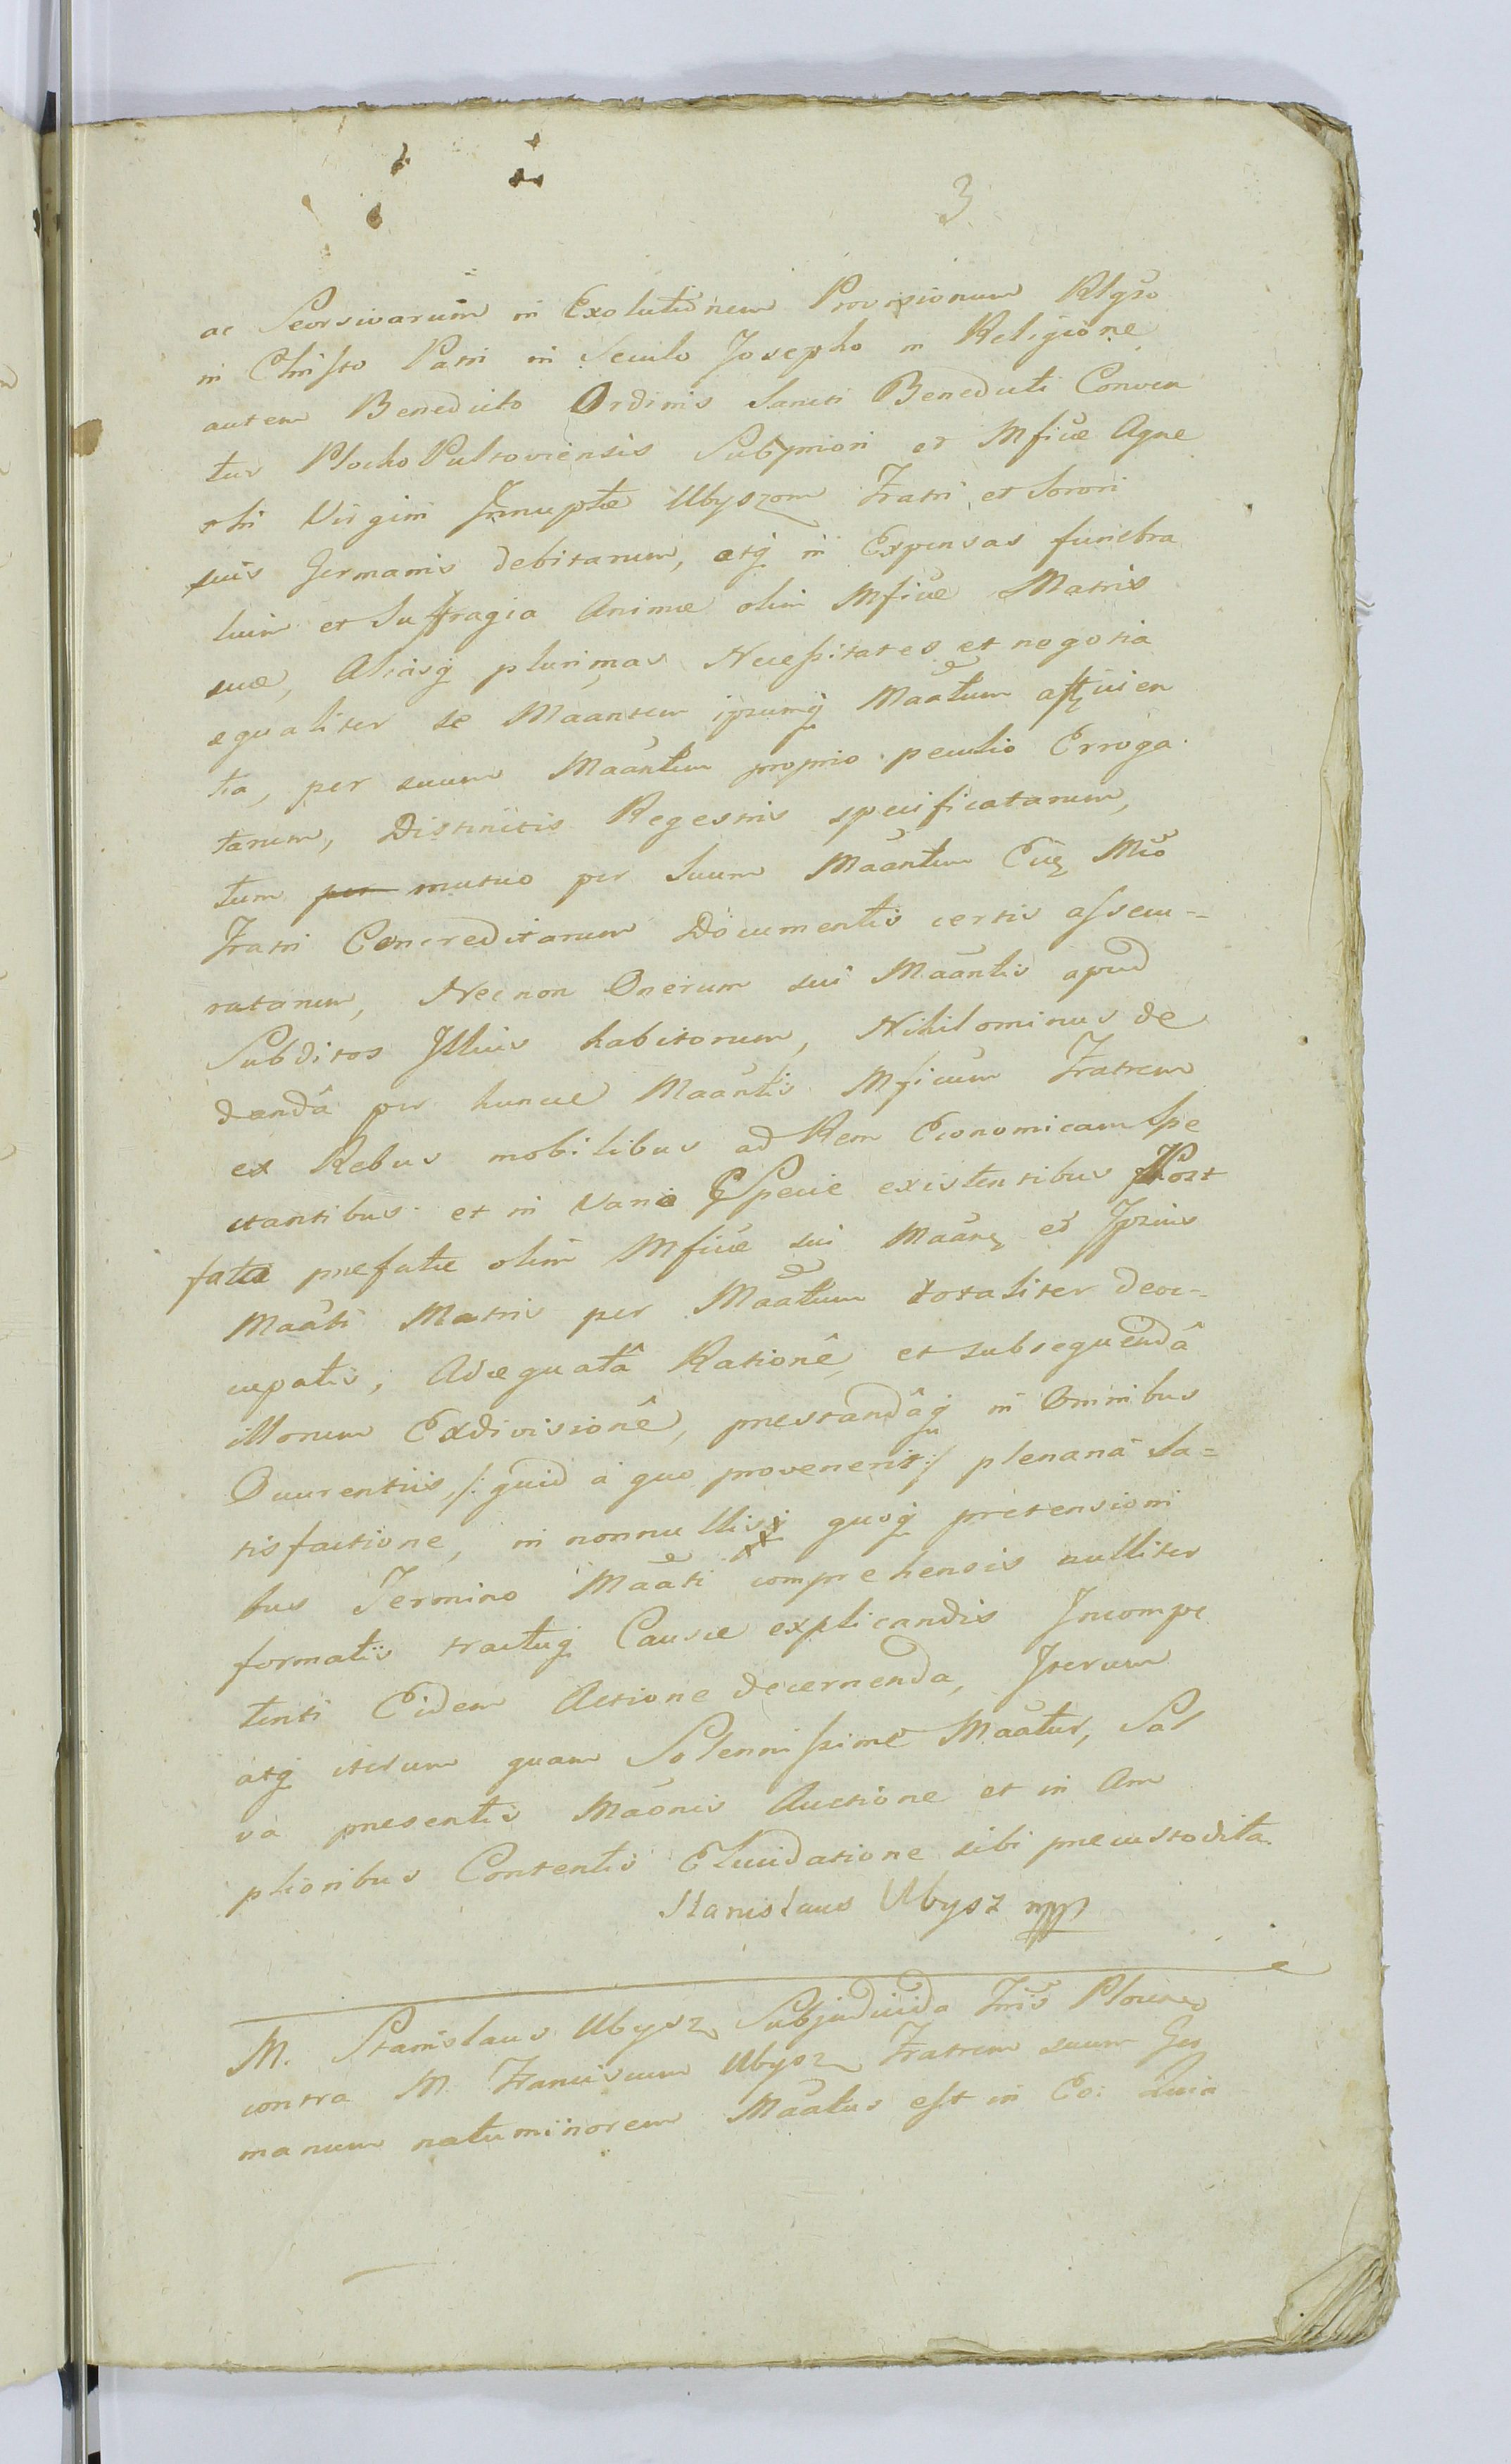 3
ac Seorsivarum in Exolutionem Provisionum Rlgso
in Christo Patri in Seculo Josepho in Religione
autem Benedicto Ordinis Sancti Benedicti Conven
tus Plocko Pultoviensis Subpriori et Mficæ Agne
thi Virgini Innuptæ Ubyszom Fratri et Sorori
suis Germanis debitarum, atq in Expensas funebra
lium et Suffragia Animæ olim Mficæ Matris
suæ, Aliasq plurimas Necessitates et negotia
equaliter se Maantem ipsumq Maatum afficien
tia, per suum Maantem proprio peculio Erroga
tarum, Distinctis Regestris specificatarum,
tum per mutuo per Suum Maantem Eiq Mco
Fratri Concreditarum Documentis certis assecu-
ratarum, Necnon Onerum sui Maantis apud
Subditos Illius habitorum, Nihilominus de
danda per huncce Maantis Mficum Fratrem
ex Rebus mobilibus ad Rem Economicam Spe
ctantibus et in Varia Specie existentibus Post
fata prefatæ olim Mficæ sui Maanq et Ipsius
Maati Matris per Maatum totaliter deoc-
cupatis, Adæquatâ Rationê, et subsequendâ
illorum Exdivisionê, prestandâq in Omnibus
Occurentiis, /: quid à quo provenerit :/ plenariâ Sa=
tisfactione, in nonnullisq quoq pretensioni
bus Termino Maati comprehensis nulliter
formatis tractuq Causæ explicandis Incompe
tenti Eidem Actione decernenda, Iterum
atq iterum quam Solennissime Maatur, Sal
va presentis Maonis Auctione et in Am
plioribus Contentis Elucidatione sibi precustodita.
Stanislaus Ubysz mpp
M. Stanislaus Ubysz Subjudicida Tris Plocen
contra M. Franciscum Ubysz Fratrem suum Ger
manum natu minorem Maatus est in Eo: Quia